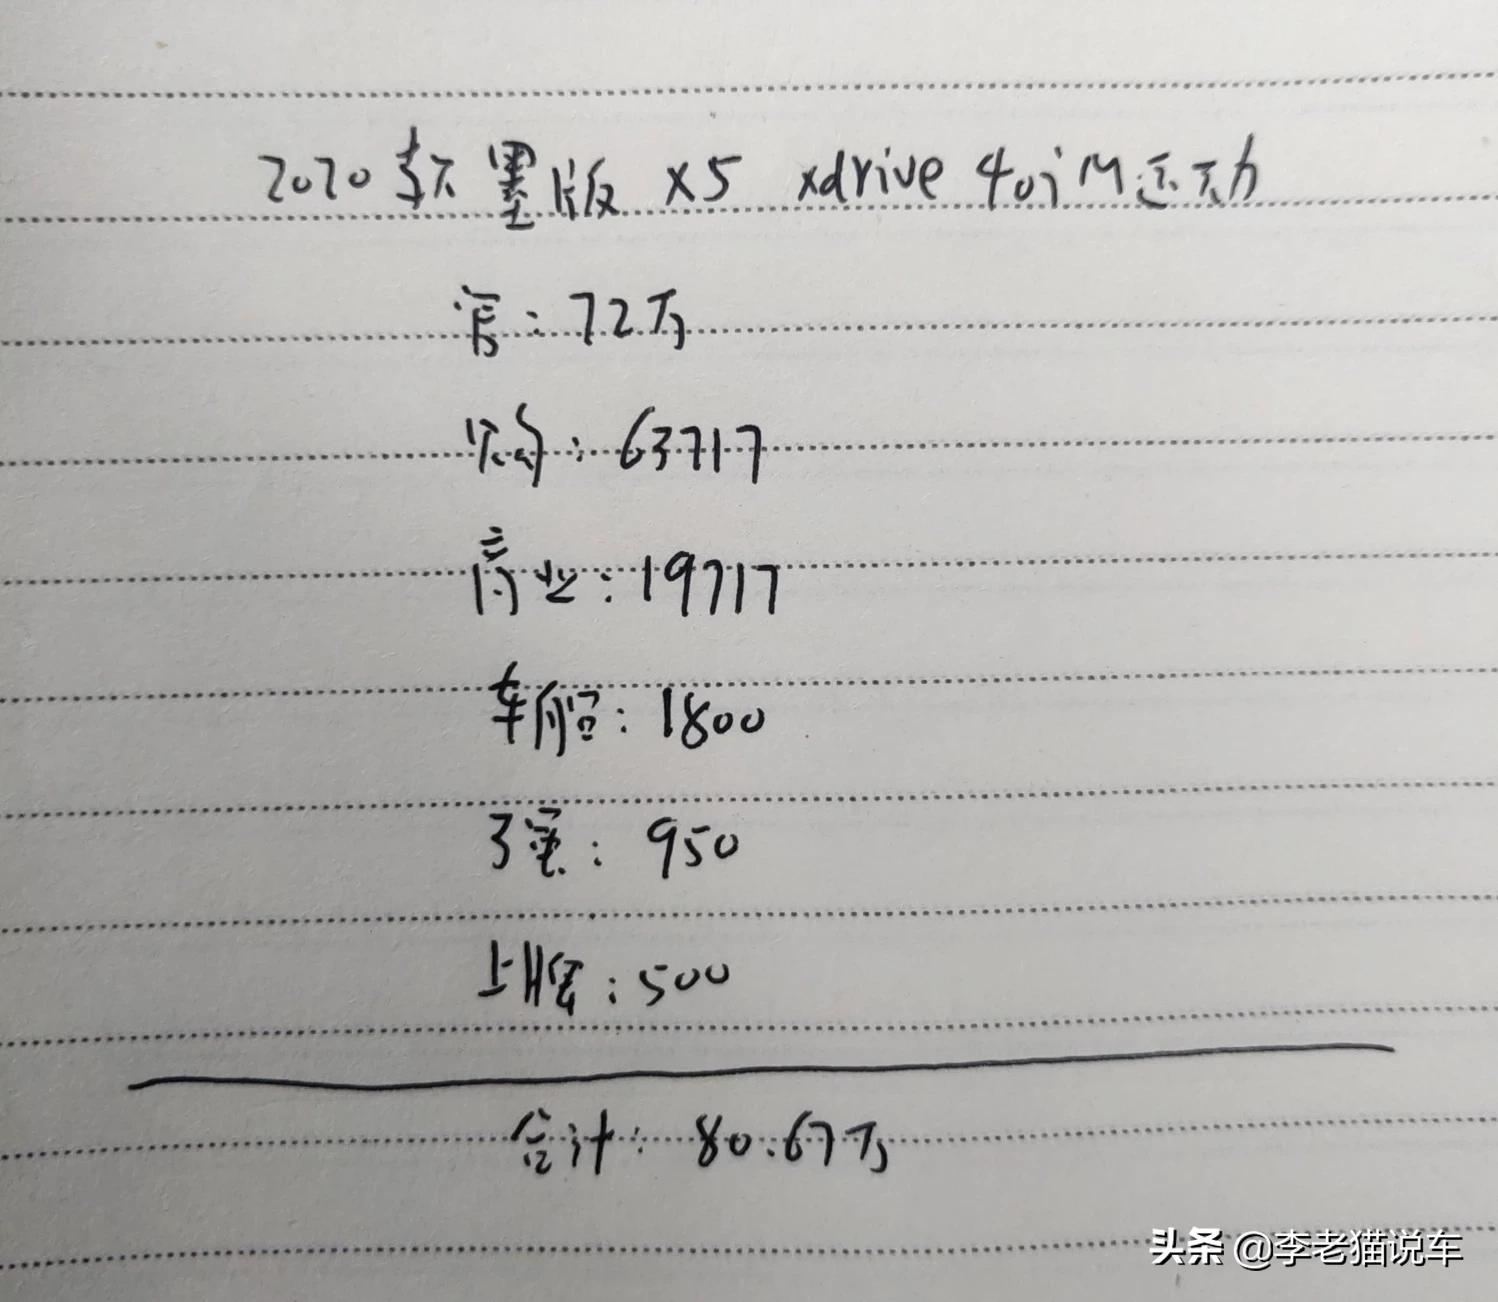 2020款墨版 x5 xdrive 40i M运动
落:72万
购:63717
商业:19717
车船:1800
交强:950
上牌:500
合计:80.67万
头条 @李老猫说车